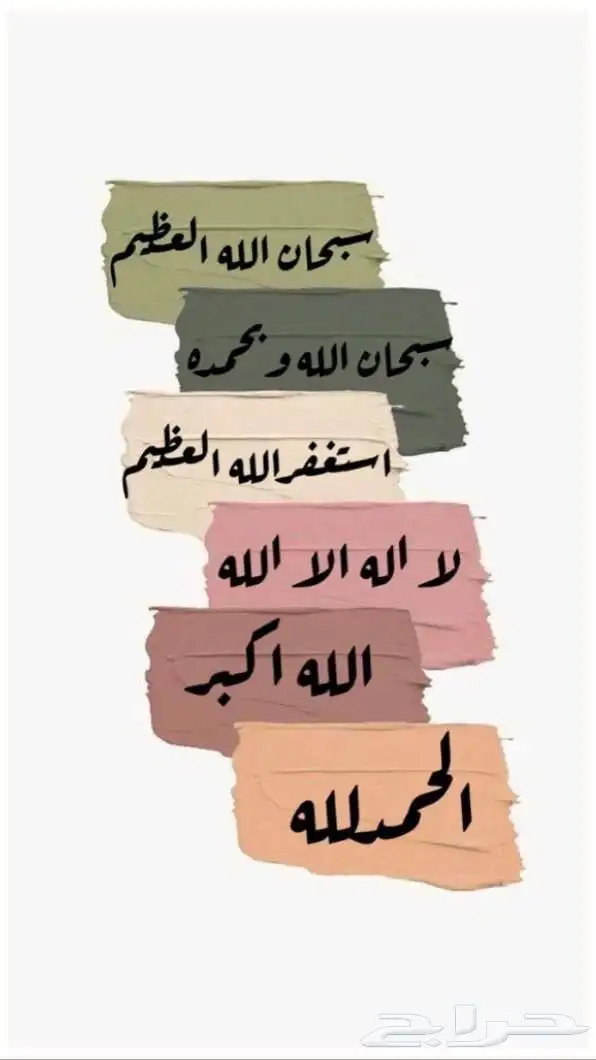 سبحان الله العظيم
سبحان الله و بحمده
استغفر الله العظيم
لا اله الا الله
الله اكبر
الحمدلله
حراج